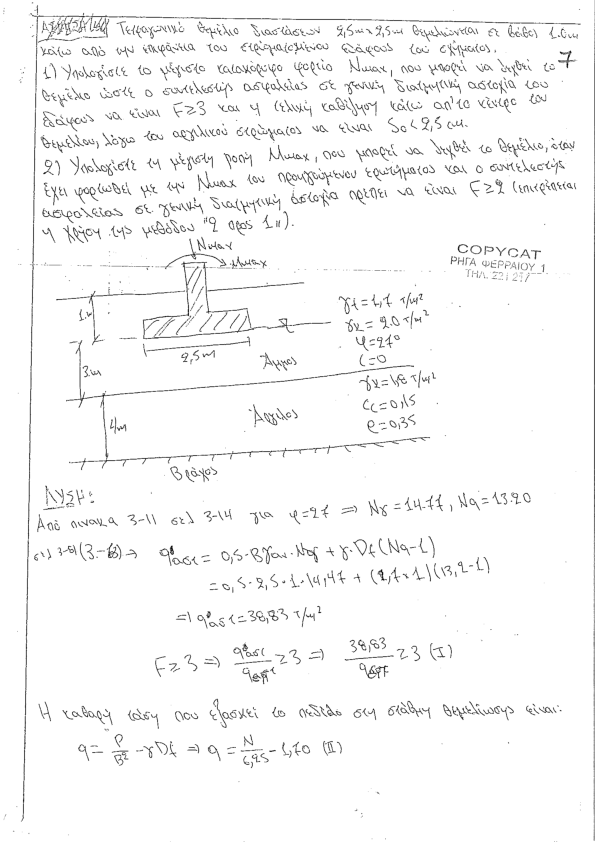 Τετραγωνικό θεμέλιο διαστάσεων 2,5m x 2,5m θεμελιώνεται σε βάθος 1.0m
κάτω από την επιφάνεια του στρωματωμένου εδάφους του σχήματος.
7
1) Υπολογίστε το μέγιστο κατακόρυφο φορτίο Nmax, που μπορεί να δεχθεί το
θεμέλιο ώστε ο συντελεστής ασφαλείας σε γενική διατμητική αστοχία του
εδάφους να είναι F≥3 και η τελική καθίζηση κάτω απ'το κέντρο του
θεμελίου, λόγω του αργιλικού στρώματος να είναι So<2,5cm.
2) Υπολογίστε τη μέγιστη ροπή Mmax, που μπορεί να δεχθεί το θεμέλιο, όταν
έχει φορτωθεί με την Nmax του προηγούμενου ερωτήματος και ο συντελεστής
ασφαλείας σε γενική διατμητική αστοχία πρέπει να είναι F≥2 (επιτρέπεται
η χρήση της μεθόδου "2 προς 1").
Nmax
Mmax
COPYCAT
ΡΗΓΑ ΦΕΡΡΑΙΟΥ 1
ΤΗΛ.
1m
γ1=1,7 T/m²
γκ=2.0 T/m²
φ=27°
C=0
2,5m
3m
Άμμος
γκ=1,8 T/m²
Cc=0,15
e=0,35
4m
Άργιλος
Βράχος
ΛΥΣΗ:
Από πινακα 3-11 σελ 3-14 για φ=27 ⇒ Nγ=14.77, Nq=13.20
⇒ qαστ = 0,5·Βγαν·Nγ + γ·Df(Nq-1)
=0,5·2,5·1·14,47 + (1,7×1)(13,2-1)
⇒ qαστ=38,83 T/m²
F≥3 ⇒ qαστ/qεπ ≥3 ⇒ 38,83/qεπ ≥3 (I)
Η καθαρή τάση που εξασκεί το πέδιλο στη στάθμη θεμελίωσης είναι:
q= P/B² -γDf ⇒ q= N/6,25 -1,70 (II)